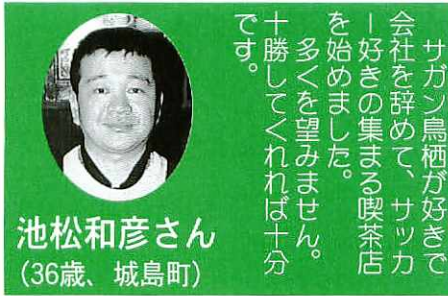 サガン鳥栖が好きで
会社を辞めて、サッカ
ー好きの集まる喫茶店
を始めました。
多くを望みません。
十勝してくれれば十分
です。
池松和彦さん
(36歳、城島町)